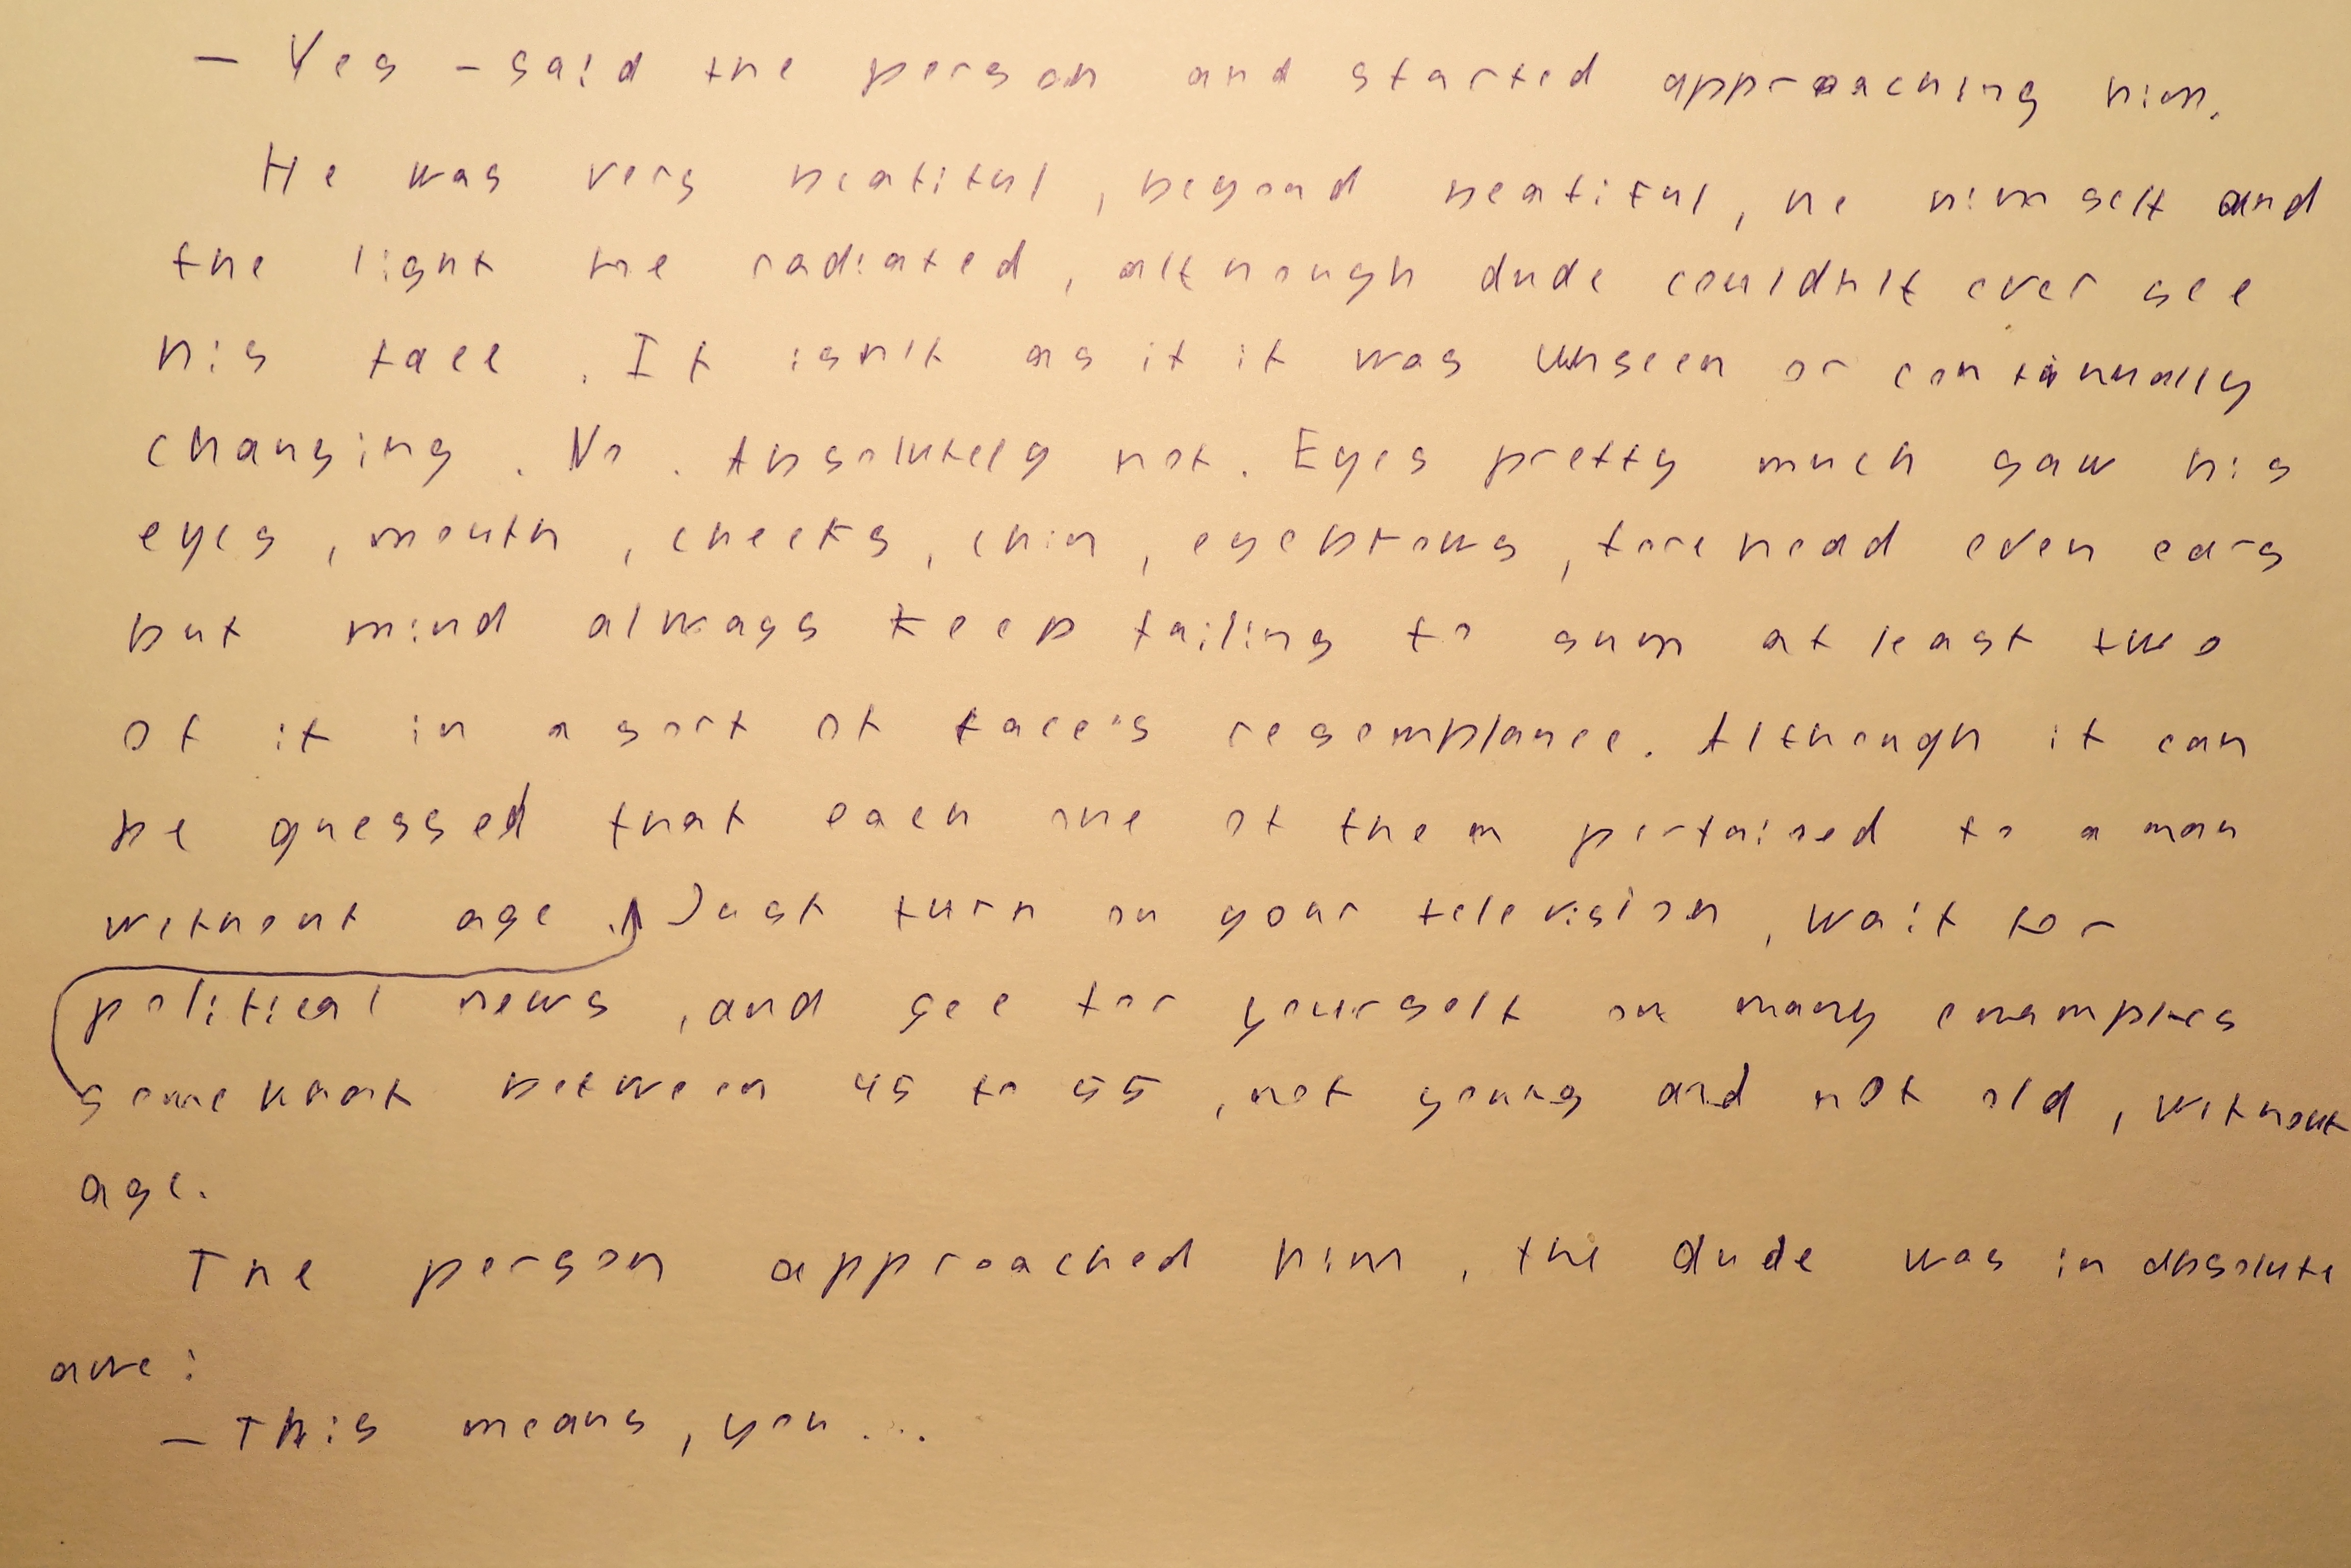 – Yes – said the person and started approaching him.
He was very beatiful, beyond beatiful, he himself and
the light he radiated, although dude couldn't ever see
his face. It isn't as if it was unseen or continually
changing. No. Absolutely not. Eyes pretty much saw his
eyes, mouth, cheeks, chin, eyebrows, forehead even ears
but mind always keep failing to sum at least two
of it in a sort of face's resemblance. Although it can
be guessed that each one of them pertained to a man
without age. Just turn on your television, wait for
political news, and see for yourself on many examples
somewhat between 45 to 55, not young and not old, without
age.
The person approached him, the dude was in absolute
awe:
– This means, you...